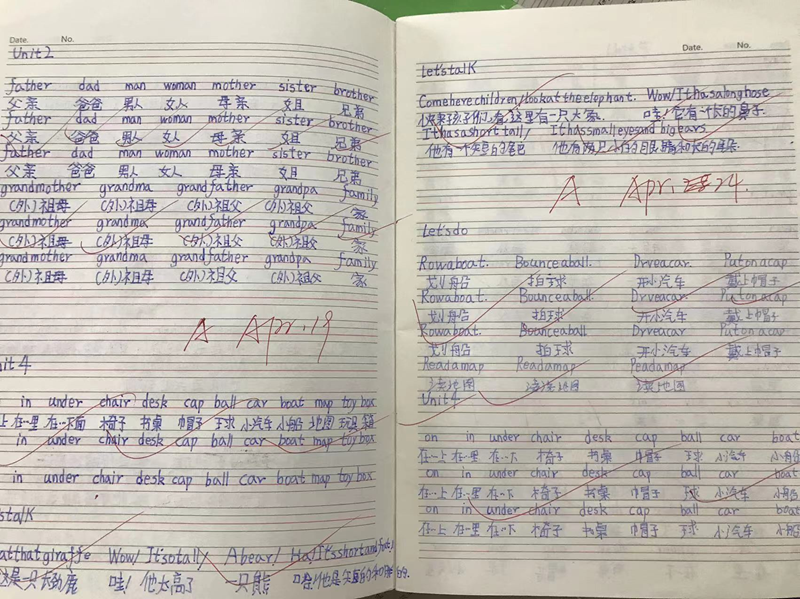 Date. No.
Unit 2
father dad man woman mother sister brother
父亲 爸爸 男人 女人 母亲 姐 兄弟
father dad man woman mother sister brother
父亲 爸爸 男人 女人 母亲 姐 兄弟
father dad man woman mother sister brother
父亲 爸爸 男人 女人 母亲 姐 兄弟
grandmother grandma grandfather grandpa family
(外)祖母 (外)祖母 (外)祖父 (外)祖父 家
grandmother grandma grandfather grandpa family
(外)祖母 (外)祖母 (外)祖父 (外)祖父 家
grandmother grandma grandfather grandpa family
(外)祖母 (外)祖母 (外)祖父 (外)祖父 家
A Apr.19
nit 4
on in under chair desk cap ball car boat map toy box
上 在…里 在…下面 椅子 书桌 帽子 球 小汽车 小船 地图 玩具箱
on in under chair desk cap ball car boat map toy box
in under chair desk cap ball car boat map toy box
stalk
atthatgiraffe Wow! It'sotall! Abear! Ha! It'sshortandfat!
这是一只长劲鹿 哇! 他太高了 一只熊 哈!他是
Date. No.
Let'stalk
Comeherechildren! Lookattheelephant. Wow! Ithasalongnose
孩子你们看,这里有一只大象. 哇!它有一个长的鼻子.
Ithasashorttail! Ithassmalleyesandbigears
他有一个短的尾巴 他有两只小的眼睛和长的耳朵
A Apr. 24.
Let'sdo
Rowaboat. Bounceaball. Drveacar. Putonacap
划船 拍球 开小汽车 戴上帽子
Rowaboat. Bounceaball Drveacar Putonacap
划船 拍球 开小汽车 戴上帽子
Rowaboat. Bounceaball Drveacar Putonacap
划船 拍球 开小汽车 戴上帽子
Readamap Readamap Readamap
读地图 读地图 读地图
Unit 4
on in under chair desk cap ball car boat
在…上 在…里 在…下 椅子 书桌 帽子 球 小汽车 小船
on in under chair desk cap ball car boat
在…上 在…里 在…下 椅子 书桌 帽子 球 小汽车 小船
on in under chair desk cap ball car boat
在…上 在…里 在…下 椅子 书桌 帽子 球 小汽车 小船